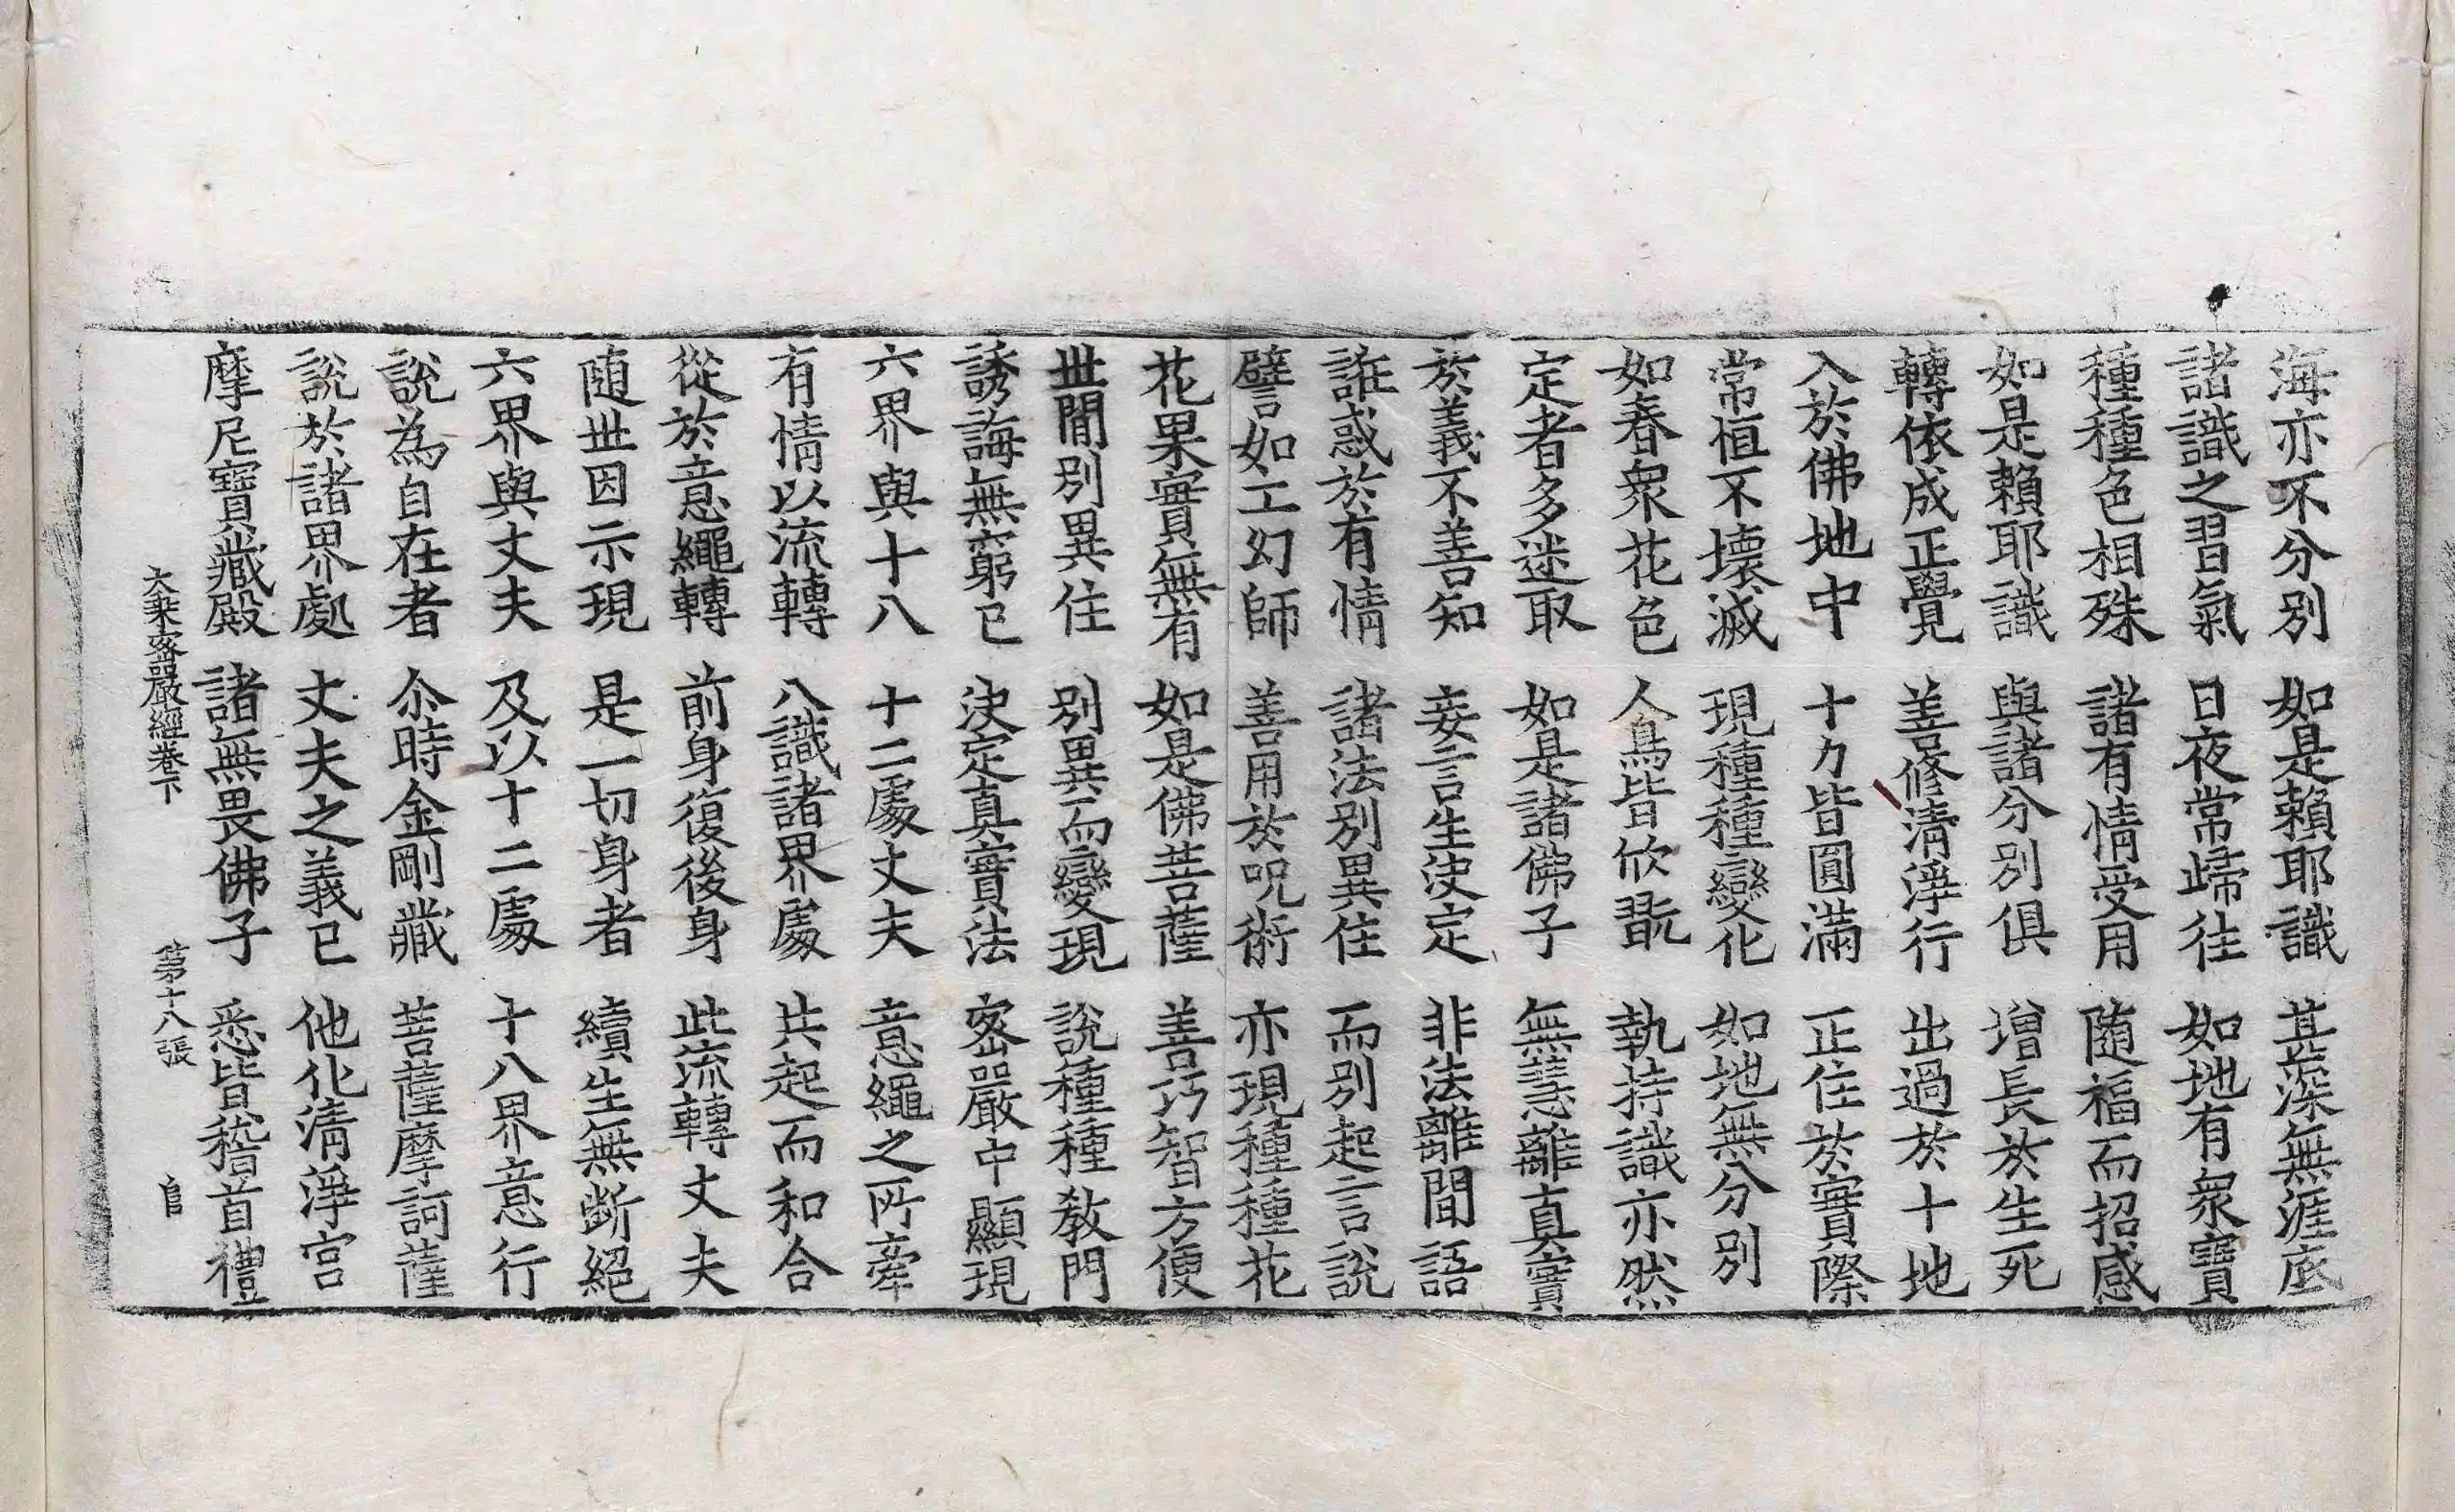 海亦不分別　如是賴耶識　甚深無涯底
諸識之習氣　日夜常歸往　如地有衆寶
種種色相殊　諸有情受用　隨福而招感
如是賴耶識　與諸分別俱　增長於生死
轉依成正覺　善修淸淨行　出過於十地
入於佛地中　十力皆圓滿　正住於實際
常恒不壞滅　現種種變化　如地無分別
如春衆花色　人鳥皆欣翫　執持識亦然
定者多迷取　如是諸佛子　無慧離真實
於義不善知　妄言生決定　非法離間語
誑惑於有情　諸法別異住　而別起言說
譬如工幻師　善用於呪術　亦現種種花
花果實無有　如是佛菩薩　善巧智方便
世間別異住　別異而變現　說種種教門
誘誨無窮已　決定真實法　密嚴中顯現
六界與十八　十二處丈夫　意繩之所牽
有情以流轉　八識諸界處　共起而和合
從於意繩轉　前身復後身　此流轉丈夫
隨世因示現　是一切身者　續生無斷絕
六界與丈夫　及以十二處　十八界意行
說為自在者　尒時金剛藏　菩薩摩訶薩
說於諸界處　丈夫之義已　他化淸淨宮
摩尼寶藏殿　諸無畏佛子　悉皆稽首禮
大乘密嚴經卷下　第十八張